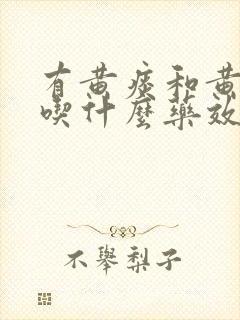 有黄痰和黄
喫什麼藥效
不舉梨子